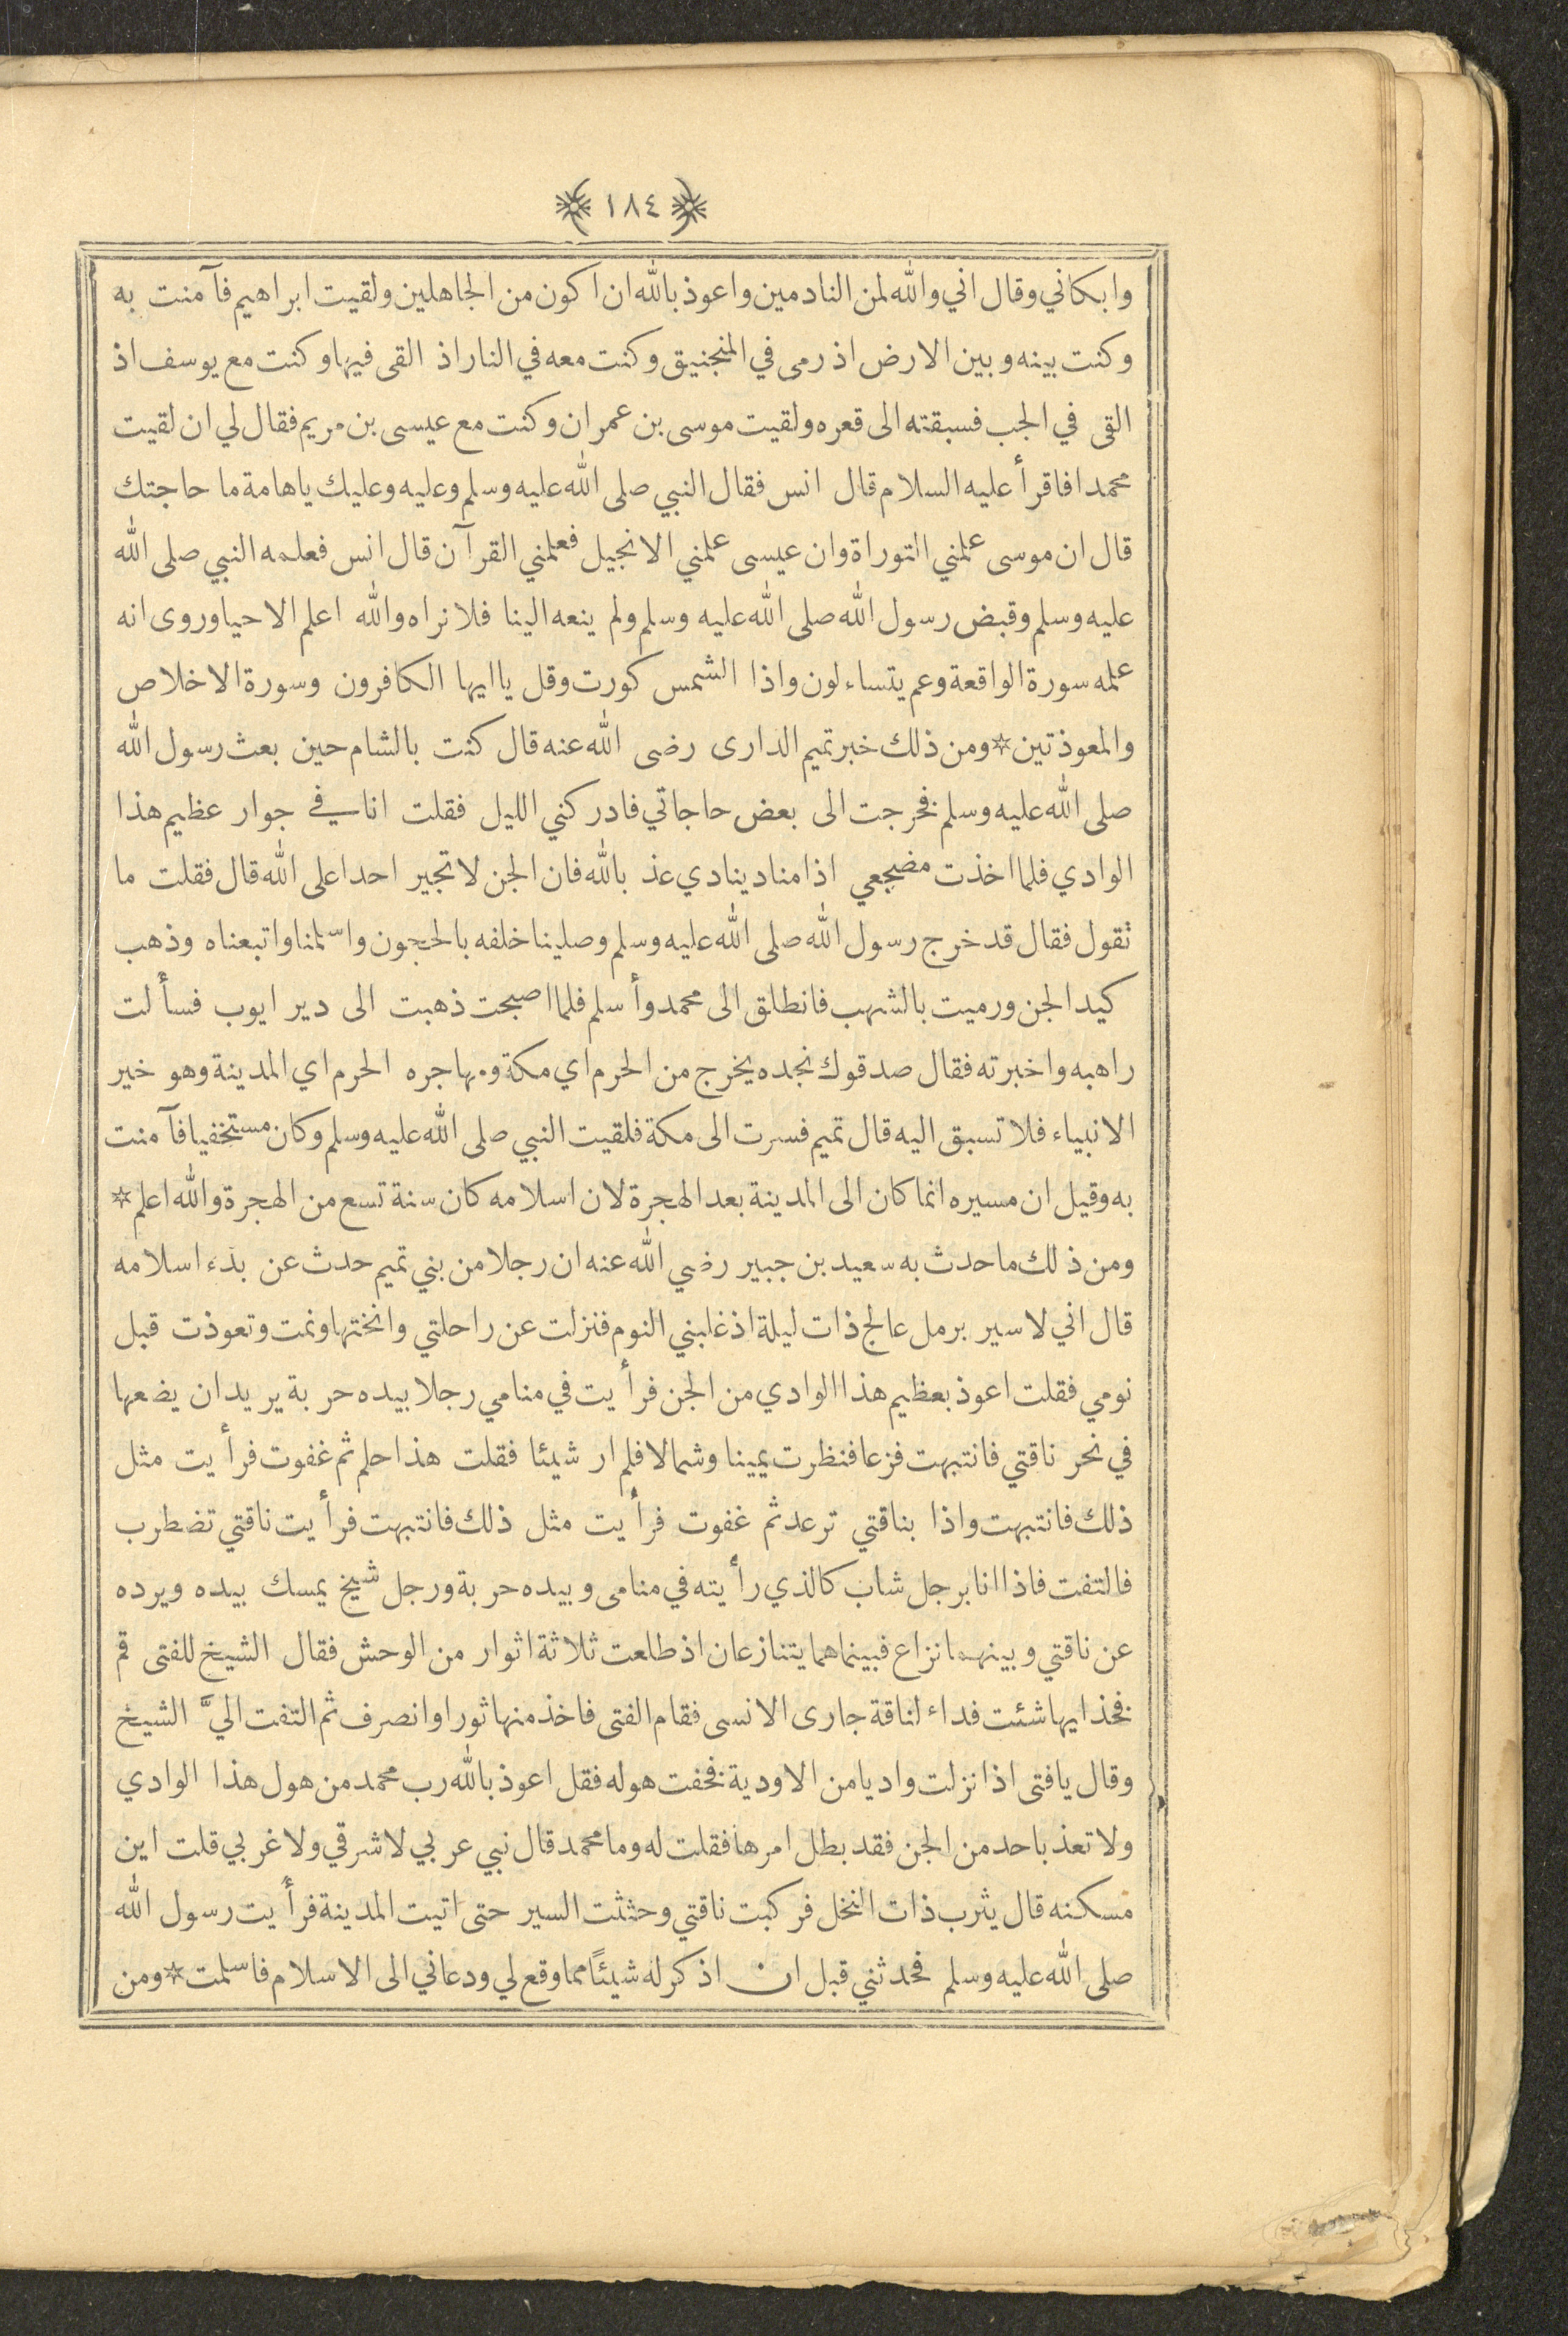 ١٨٤
وابكاني وقال اني والله لمن النادمين واعوذ بالله ان اكون من الجاهلين ولقيت ابراهيم فآمنت به
وكنت بينه وبين الارض اذ رمى في المنجنيق وكنت معه في النار اذ القى فيها وكنت مع يوسف اذ
القى في الجب فسبقته الى قعره ولقيت موسى بن عمران وكنت مع عيسى بن مريم فقال لي ان لقيت
محمدا فاقرأ عليه السلام قال انس فقال النبي صلى الله عليه وسلم وعليه وعليك ياهامة ما حاجتك
قال ان موسى علمني التوراة وان عيسى علمني الانجيل فعلمني القرآن قال انس فعلمه النبي صلى الله
عليه وسلم وقبض رسول الله صلى الله عليه وسلم ولم ينعه الينا فلا نراه والله اعلم الاحيا وروى انه
علمه سورة الواقعة وعم يتساءلون واذا الشمس كورت وقل يا ايها الكافرون وسورة الاخلاص
والمعوذتين * ومن ذلك خبر تميم الدارى رضى الله عنه قال كنت بالشام حين بعث رسول الله
صلى الله عليه وسلم فخرجت الى بعض حاجاتي فادركني الليل فقلت انا في جوار عظيم هذا
الوادي فلما اخذت مضجعي اذا مناد ينادي عذ بالله فان الجن لا تجير احدا على الله قال فقلت ما
تقول فقال قد خرج رسول الله صلى الله عليه وسلم وصلينا خلفه بالحجون واسلمنا واتبعناه وذهب
كيد الجن ورميت بالشهب فانطلق الى محمد وأسلم فلما اصبحت ذهبت الى دير ايوب فسألت
راهبه واخبرته فقال صدقوك نجده يخرج من الحرم اي مكة ومهاجره الحرم اي المدينة وهو خير
الانبياء فلا تسبق اليه قال تميم فسرت الى مكة فلقيت النبي صلى الله عليه وسلم وكان مستخفيا فآمنت
به وقيل ان مسيره انما كان الى المدينة بعد الهجرة لان اسلامه كان سنة تسع من الهجرة والله اعلم *
ومن ذلك ما حدث به سعيد بن جبير رضي الله عنه ان رجلا من بني تميم حدث عن بدء اسلامه
قال اني لاسير برمل عالج ذات ليلة اذ غلبني النوم فنزلت عن راحلتي وانختها ونمت وتعوذت قبل
نومي فقلت اعوذ بعظيم هذا الوادي من الجن فرأيت في منامي رجلا بيده حربة يريد ان يضعها
في نحر ناقتي فانتبهت فزعا فنظرت يمينا وشمالا فلم ار شيئا فقلت هذا حلم ثم غفوت فرأيت مثل
ذلك فانتبهت واذا بناقتي ترعد ثم غفوت فرأيت مثل ذلك فانتبهت فرأيت ناقتي تضطرب
فالتفت فاذا انا برجل شاب كالذي رأيته في منامى وبيده حربة ورجل شيخ يمسك بيده ويرده
عن ناقتي وبينهما نزاع فبينما هما يتنازعان اذ طلعت ثلاثة اثوار من الوحش فقال الشيخ للفتى قم
فخذ ايها شئت فداء لناقة جارى الانسى فقام الفتى فاخذ منها ثورا وانصرف ثم التفت اليَّ الشيخ
وقال يا فتى اذا نزلت واديا من الاودية فخفت هوله فقل اعوذ بالله رب محمد من هول هذا الوادي
ولا تعذ باحد من الجن فقد بطل امرها فقلت له وما محمد قال نبي عربي لا شرقي ولا غربي قلت اين
مسكنه قال يثرب ذات النخل فركبت ناقتي وحثثت السير حتى اتيت المدينة فرأيت رسول الله
صلى الله عليه وسلم فحدثني قبل ان اذكر له شيئًا مما وقع لي ودعاني الى الاسلام فاسلمت * ومن